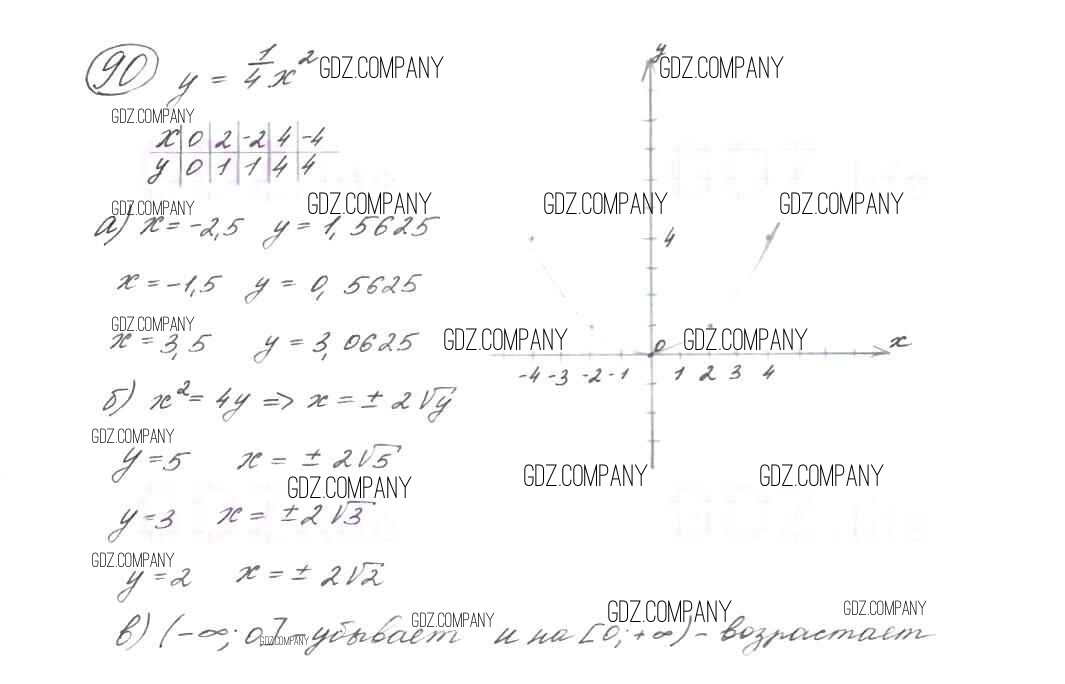 90 y = 1/4 x² GDZ.COMPANY
GDZ.COMPANY
x | 0 | 2 | -2 | 4 | -4
y | 0 | 1 | 1 | 4 | 4
GDZ.COMPANY GDZ.COMPANY
а) x = -2,5 y = 1,5625
x = -1,5 y = 0,5625
GDZ.COMPANY
x = 3,5 y = 3,0625
б) x² = 4y => x = ± 2√y
GDZ.COMPANY
y = 5 x = ± 2√5
GDZ.COMPANY
y = 3 x = ± 2√3
GDZ.COMPANY
y = 2 x = ± 2√2
GDZ.COMPANY
в) (-∞; 0] - убывает и на [0; +∞) - возрастает
GDZ.COMPANY
y GDZ.COMPANY
GDZ.COMPANY GDZ.COMPANY
4
GDZ.COMPANY 0 GDZ.COMPANY x
-4 -3 -2 -1 1 2 3 4
GDZ.COMPANY GDZ.COMPANY
GDZ.COMPANY GDZ.COMPANY